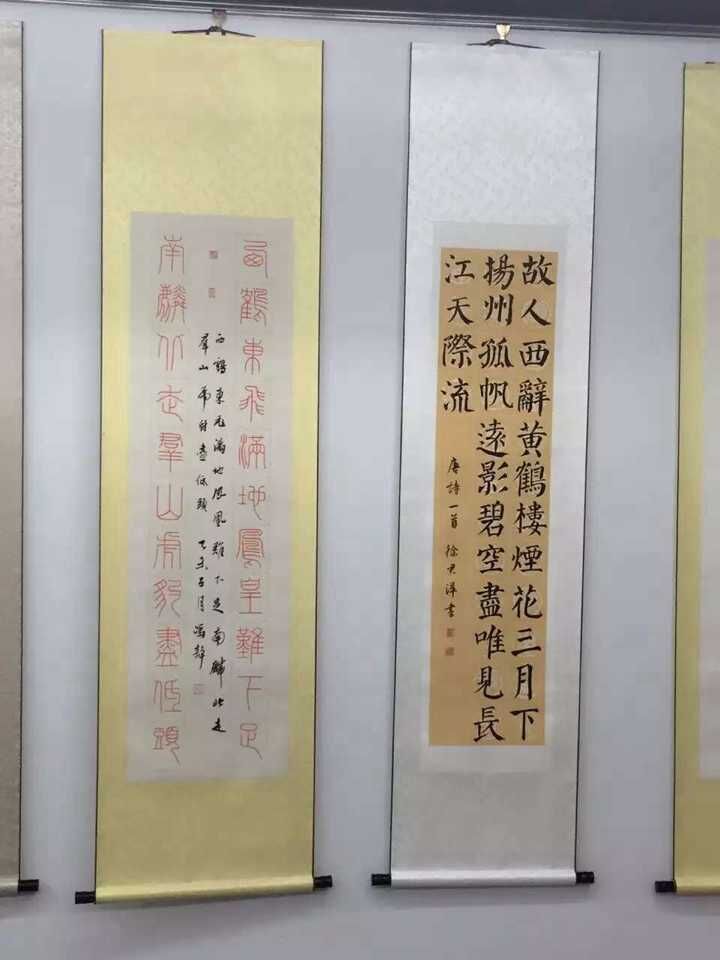 故人西辭黃鶴樓煙花三月下
揚州孤帆遠影碧空盡唯見長
江天際流
唐詩一首 徐 洋書
西鶴東飛滿地鳳皇難下足
西鶴東飛滿地鳳凰難下足南麟北走
羣山虎豹盡低頭 乙未 月馮靜
南麟北走羣山虎豹盡低頭